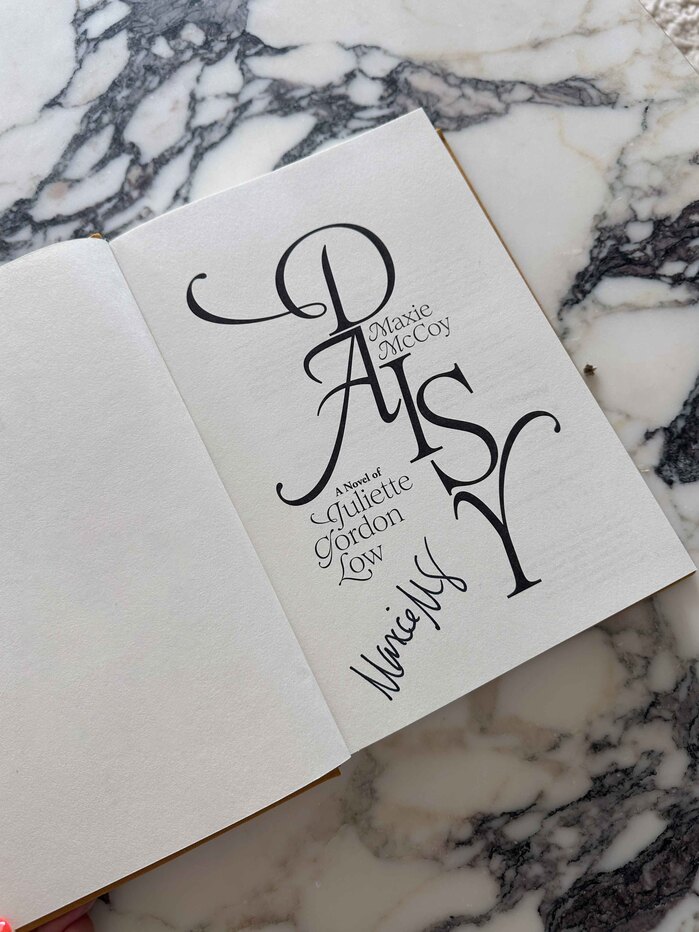 DAISY
Maxie
McCoy
A Novel of
Juliette
Gordon
Low